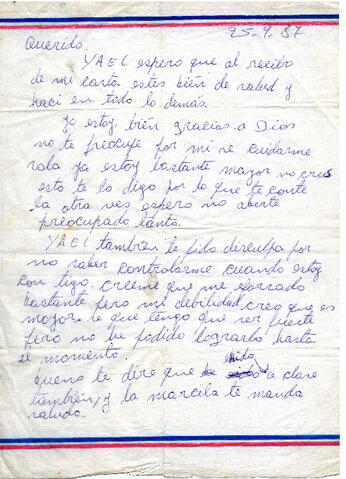 25-9-87
Querido,
YAEL espero que al recibo
de mi carta estes bien de salud y
haci en todo lo demás.
Yo estoy bien gracias a Dios
no te preocupe por mi se cuidarme
sola ya estoy bastante mayor no crees
esto te lo digo por lo que te conte
la otra ves espero no aberte
preocupado tanto.
YAEL tambien te pido disculpa por
no saber controlarme cuando estoy
con tigo. creeme que me forzado
bastante pero mi debilidad creo que es
mayor. se que tengo que ser fuerte
pero no he podido lograrlo hasta
el momento.
bueno te dire que a clare
también, y la marcela te manda
saludo.